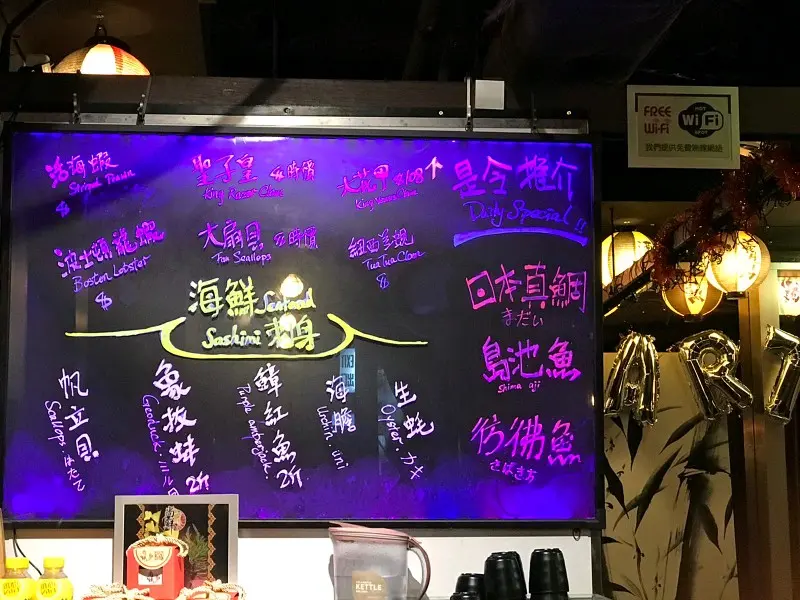 活海蝦
$
聖子皇 $時價
King Razor Clam
大花甲 $108
是今推介
Daily Special!!
波士頓龍蝦
Boston Lobster
$
大扇貝 $時價
Fan Scallops
紐西蘭蜆
TuaTua Clam
$
海鮮 Seafood
Sashimi 刺身
日本真鯛
まだい
島池魚
Shima aji
彷彿魚
帆立貝
Scallops. ほたて
象拔蚌 2斤
Geoduck.
鱆紅魚 2斤
Purple amberjack.
海膽
Urchin. uni
生蚝
Oyster. カキ
FREE
Wi-Fi
HOT
WiFi
SPOT
我們提供免費無線網絡
ART
KETTLE